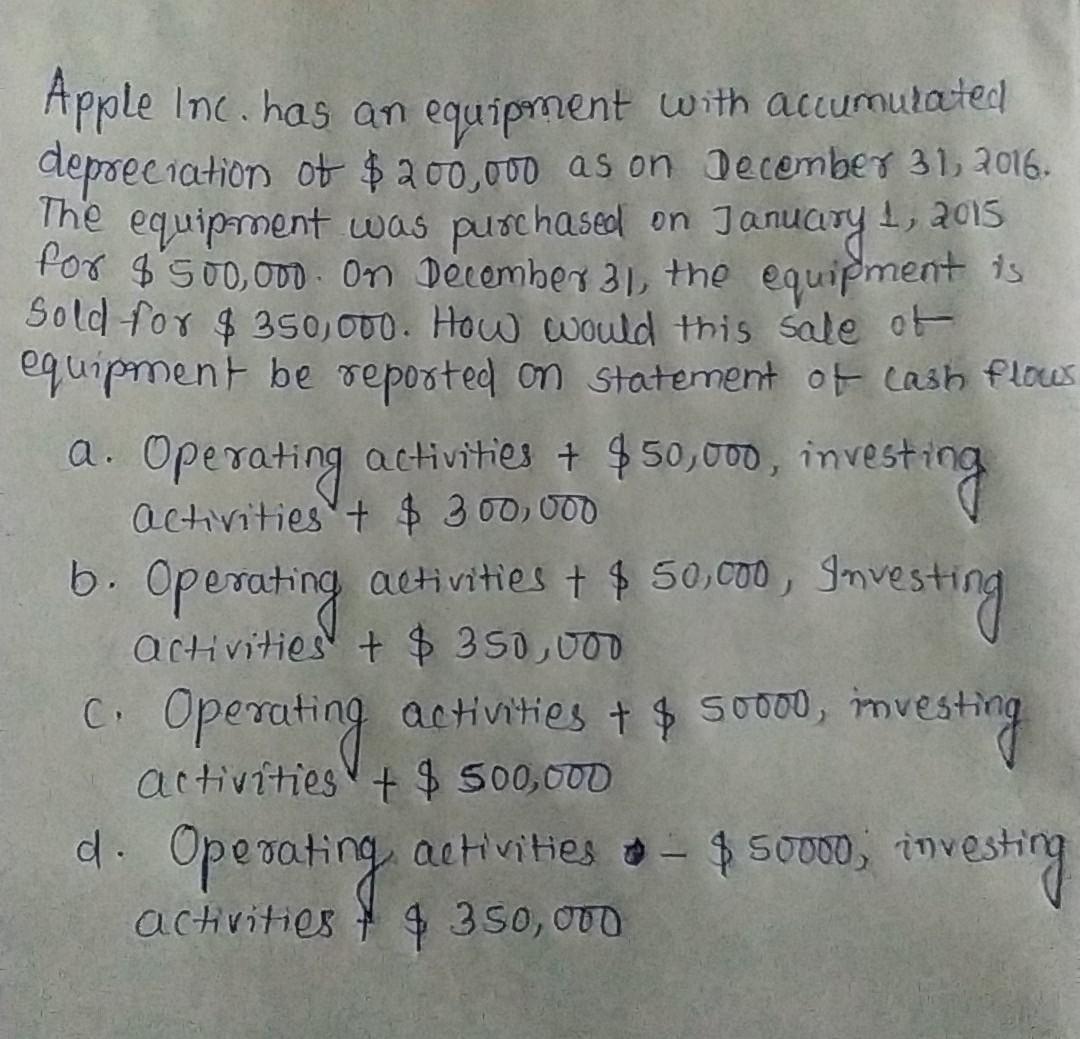 Apple Inc. has an equipment with accumulated
depreciation of $ 200,000 as on December 31, 2016.
The equipment was purchased on January 1, 2015
for $ 500,000. On December 31, the equipment is
Sold for $ 350,000. How would this sale of
equipment be reported on statement of cash flows
a. Operating activities + $ 50,000, investing
activities + $ 300,000
b. Operating activities + $ 50,000, Investing
activities + $ 350,000
c. Operating activities + $ 50000, investing
activities + $ 500,000
d. Operating activities - $ 50000, investing
activities + $ 350,000